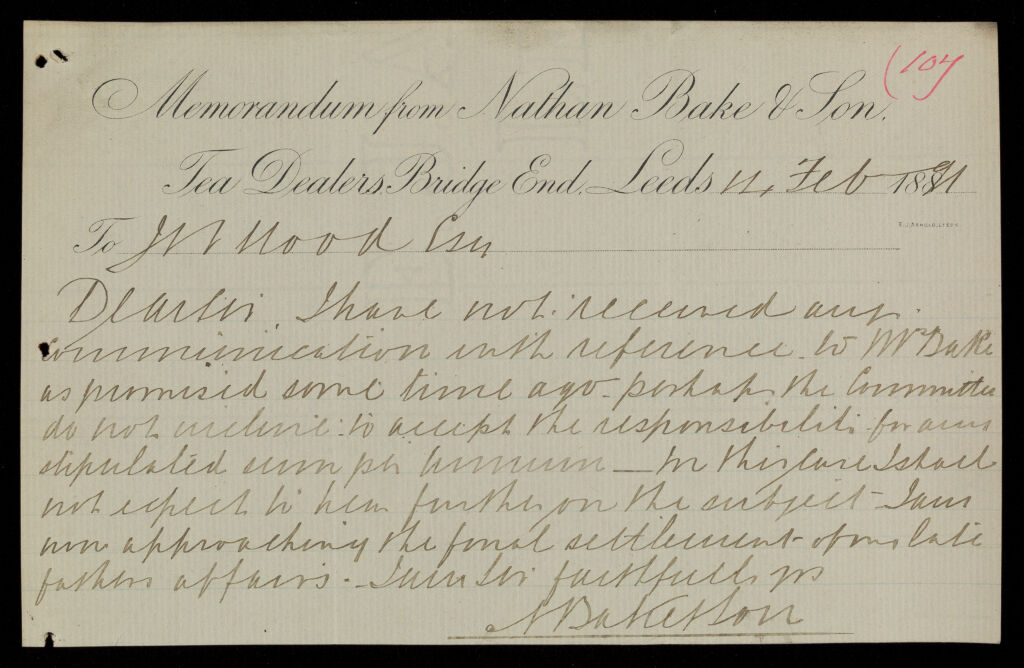 (104
Memorandum from Nathan Bake & Son.
Tea Dealers, Bridge End, Leeds 11, Feb 1891
E.J. ARNOLD, LEEDS
To J W Wood Esq
Dear Sir. I have not received any
communication with reference to Mrs Bake
as promised some time ago - perhaps the Committee
do not incline to accept the responsibility for any
stipulated sum per Annum — In this case I shall
not expect to hear further on the subject - I am
now approaching the final settlement of my late
fathers affairs - I am Sir faithfully yrs
N Bake & Son